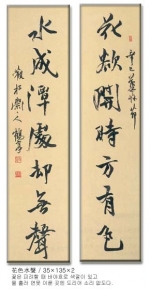 花欲開時方有色
水成潭處却無聲
花色水聲 / 35×135×2
꽃은 피려할 때 바야흐로 색깔이 있고
물 흘러 연못 이룬 곳엔 도리어 소리 없도다.